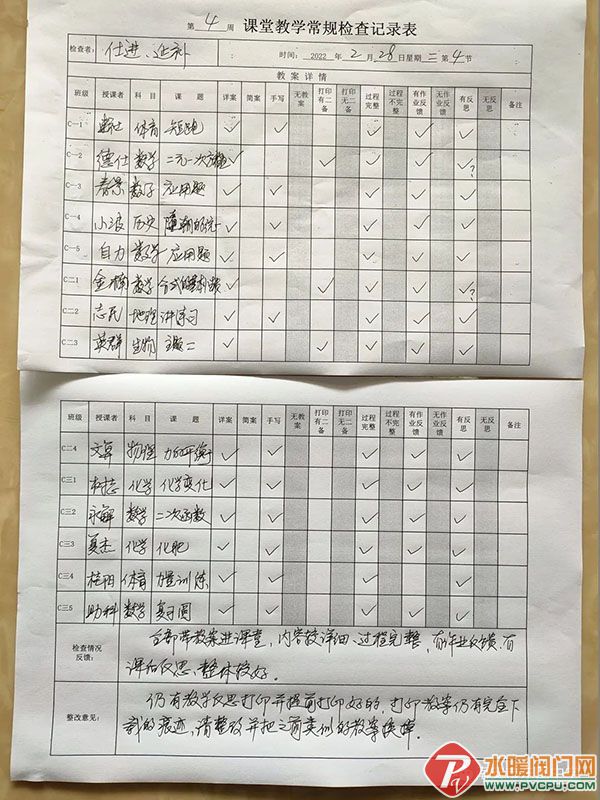 第 4 周 课堂教学常规检查记录表
检查者： 仕进、延科 时间：2022 年 2 月 28 日星期 三 第 4 节
教案详情
班级 授课者 科目 课题 详案 简案 手写 无教案 打印有二备 打印无二备 过程完整 过程不完整 有作业反馈 无作业反馈 有反思 无反思 备注
C一1 体育 短跑 ✓ ✓ ✓ ✓ ✓
C一2 德仕 数学 二元一次方程 ✓ ✓ ✓ ✓ ✓?
C一3 春景 数学 应用题 ✓ ✓ ✓ ✓ ✓
C一4 小浪 历史 隋朝的统一 ✓ ✓ ✓ ✓ ✓
C一5 自力 数学 应用题 ✓ ✓ ✓ ✓ ✓
C二1 金楠 数学 ✓ ✓ ✓ ✓ ✓?
C二2 志民 地理 讲练习 ✓ ✓ ✓ ✓ ✓
C二3 英群 生物 二 ✓ ✓ ✓ ✓ ✓
班级 授课者 科目 课题 详案 简案 手写 无教案 打印有二备 打印无二备 过程完整 过程不完整 有作业反馈 无作业反馈 有反思 无反思 备注
C二4 物理 力的平衡 ✓ ✓ ✓ ✓ ✓
C三1 化学 化学变化 ✓ ✓ ✓ ✓ ✓
C三2 永解 数学 二次函数 ✓ ✓ ✓ ✓ ✓
C三3 夏杰 化学 化肥 ✓ ✓ ✓ ✓ ✓
C三4 桂阳 体育 力量训练 ✓ ✓ ✓ ✓ ✓
C三5 助科 数学 复习圆 ✓ ✓ ✓ ✓ ✓
检查情况反馈： 全部带教案进课堂，内容较详细，过程完整，有作业反馈，有
课后反思，整体较好．
整改意见： 仍有教学反思打印并提前打印好的，打印教案仍有完全下
载的痕迹，请整改并把之前类似的教案换掉．
水暖阀门网
WWW.PVCPU.COM